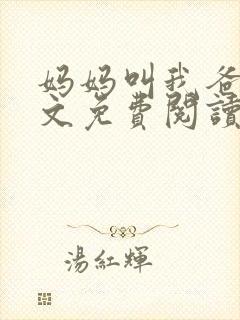 妈妈叫我爸
文免費閱讀
湯紅輝